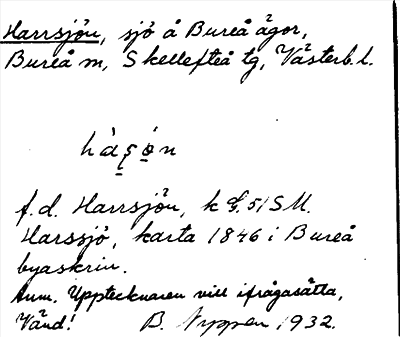 Harrsjön, sjö å Bureå ägor,
Bureå sn, Skellefteå tg, Västerb. l.
f.d. Harrsjön, k G. 51 S M.
Harssjö, karta 1846 i Bureå
byaskrin.
Anm. Upptecknaren vill ifrågasätta,
Vänd! B. Nygren 1932.